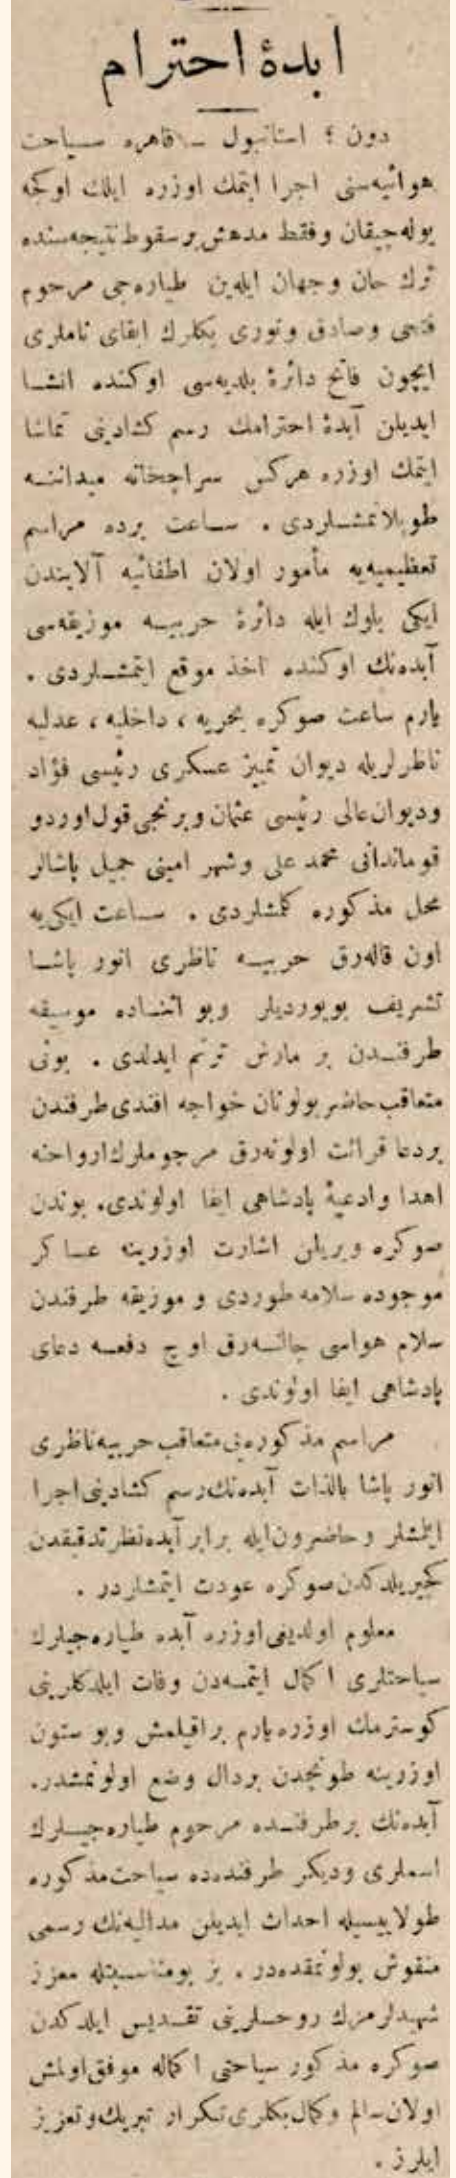 ابدهٔ احترام
دون ؛ استانبول ـ قاهره سیاحت
هوائیه‌سنی اجرا ایتمك اوزره ایلك اوكجه
یوله‌چیقان وفقط مدهش برسقوط نتیجه‌سنده
ترك جان وجهان ایله‌ین طیاره‌جی مرحوم
فتحی وصادق ونوری بكلرك ابقای ناملری
ایچون فاتح دائرهٔ بلدیه‌سی اوكنده انشا
ایدیلن آبدهٔ احترامك رسم كشادینی تماشا
ایتمك اوزره هركس سراجخانه میداننه
طوپلانمشلردی . ساعت برده مراسم
تعظیمیه‌یه مأمور اولان اطفائیه آلایندن
ایكی بلوك ایله دائرهٔ حربیه موزیقه‌سی
آبده‌نك اوكنده اخذ موقع ایتمشلردی .
یارم ساعت صوكره بحریه ، داخلیه ، عدلیه
ناظرلریله دیوان تمییز عسكری رئیسی فؤاد
ودیوان عالی رئیسی عثمان وبرنجی قول‌اوردو
قوماندانی محمد علی وشهر امینی جمیل پاشالر
محل مذكوره كلمشلردی . ساعت ایكی‌یه
اون قاله‌رق حربیه ناظری انور پاشا
تشریف بویوردیلر وبو اثناده موسیقه
طرفندن بر مارش ترنم ایدلدی . بونی
متعاقب حاضر بولونان خواجه افندی طرفندن
بردعا قرائت اولونه‌رق مرحوملرك ارواحنه
اهدا وادعیهٔ پادشاهی ایفا اولوندی. بوندن
صوكره ویریلن اشارت اوزرینه عساكر
موجوده سلامه طوردی و موزیقه طرفندن
سلام هواسی چالنه‌رق اوچ دفعه دعای
پادشاهی ایفا اولوندی .
مراسم مذكوره‌یی متعاقب حربیه ناظری
انور پاشا بالذات آبده‌نك رسم كشادینی اجرا
ایتمشلر وحاضرون ایله برابر آبده نظر تدقیقدن
كچیریلدكدن صوكره عودت ایتمشلردر .
معلوم اولدیغی اوزره آبده طیاره‌جیلرك
سیاحتلری اكمال ایتمه‌دن وفات ایلدكلرینی
كوسترمك اوزره یارم براقیلمش وبو ستون
اوزرینه طونجدن بردال وضع اولونمشدر.
آبده‌نك برطرفنده مرحوم طیاره‌جیلرك
اسملری ودیكر طرفنده‌ده سیاحت مذكوره
طولاییسیله احداث ایدیلن مدالیه‌نك رسمی
منقوش بولونمقده‌در . بز بومناسبتله معزز
شهیدلرمزك روحلرینی تقدیس ایلدكدن
صوكره مذكور سیاحتی اكماله موفق اولمش
اولان سالم وكمال بكلری تكرار تبریك وتعزیز
ایلرز .